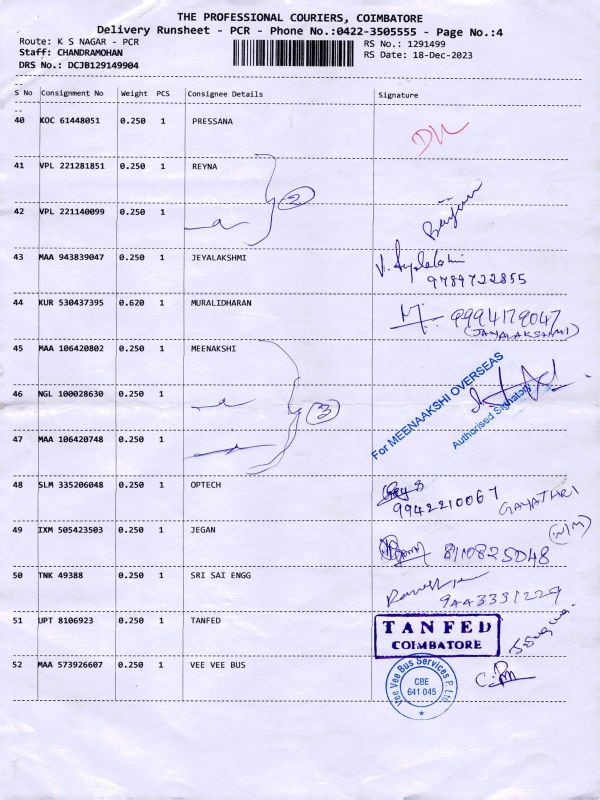 THE PROFESSIONAL COURIERS, COIMBATORE
Delivery Runsheet - PCR - Phone No.:0422-3505555 - Page No.:4
Route: K S NAGAR - PCR
RS No.: 1291499
Staff: CHANDRAMOHAN
RS Date: 18-Dec-2023
DRS No.: DCJB129149904
S No Consignment No Weight PCS Consignee Details Signature
40 KOC 61448051 0.250 1 PRESSANA
41 VPL 221281851 0.250 1 REYNA
2
42 VPL 221140099 0.250 1
43 MAA 943839047 0.250 1 JEYALAKSHMI
9789722855
44 KUR 530437395 0.620 1 MURALIDHARAN
M. 9994179047
(JAYALAKSHMI)
45 MAA 106420802 0.250 1 MEENAKSHI
For MEENAAKSHI OVERSEAS
46 NGL 100028630 0.250 1
3
Authorised Signatory
47 MAA 106420748 0.250 1
48 SLM 335206048 0.250 1 OPTECH
9942210067 GAYATHRI
49 IXM 505423503 0.250 1 JEGAN
(W/M)
50 TNK 49388 0.250 1 SRI SAI ENGG
51 UPT 8106923 0.250 1 TANFED
TANFED
COIMBATORE
52 MAA 573926607 0.250 1 VEE VEE BUS
Vee Vee Bus Services P Ltd
CBE
641 045